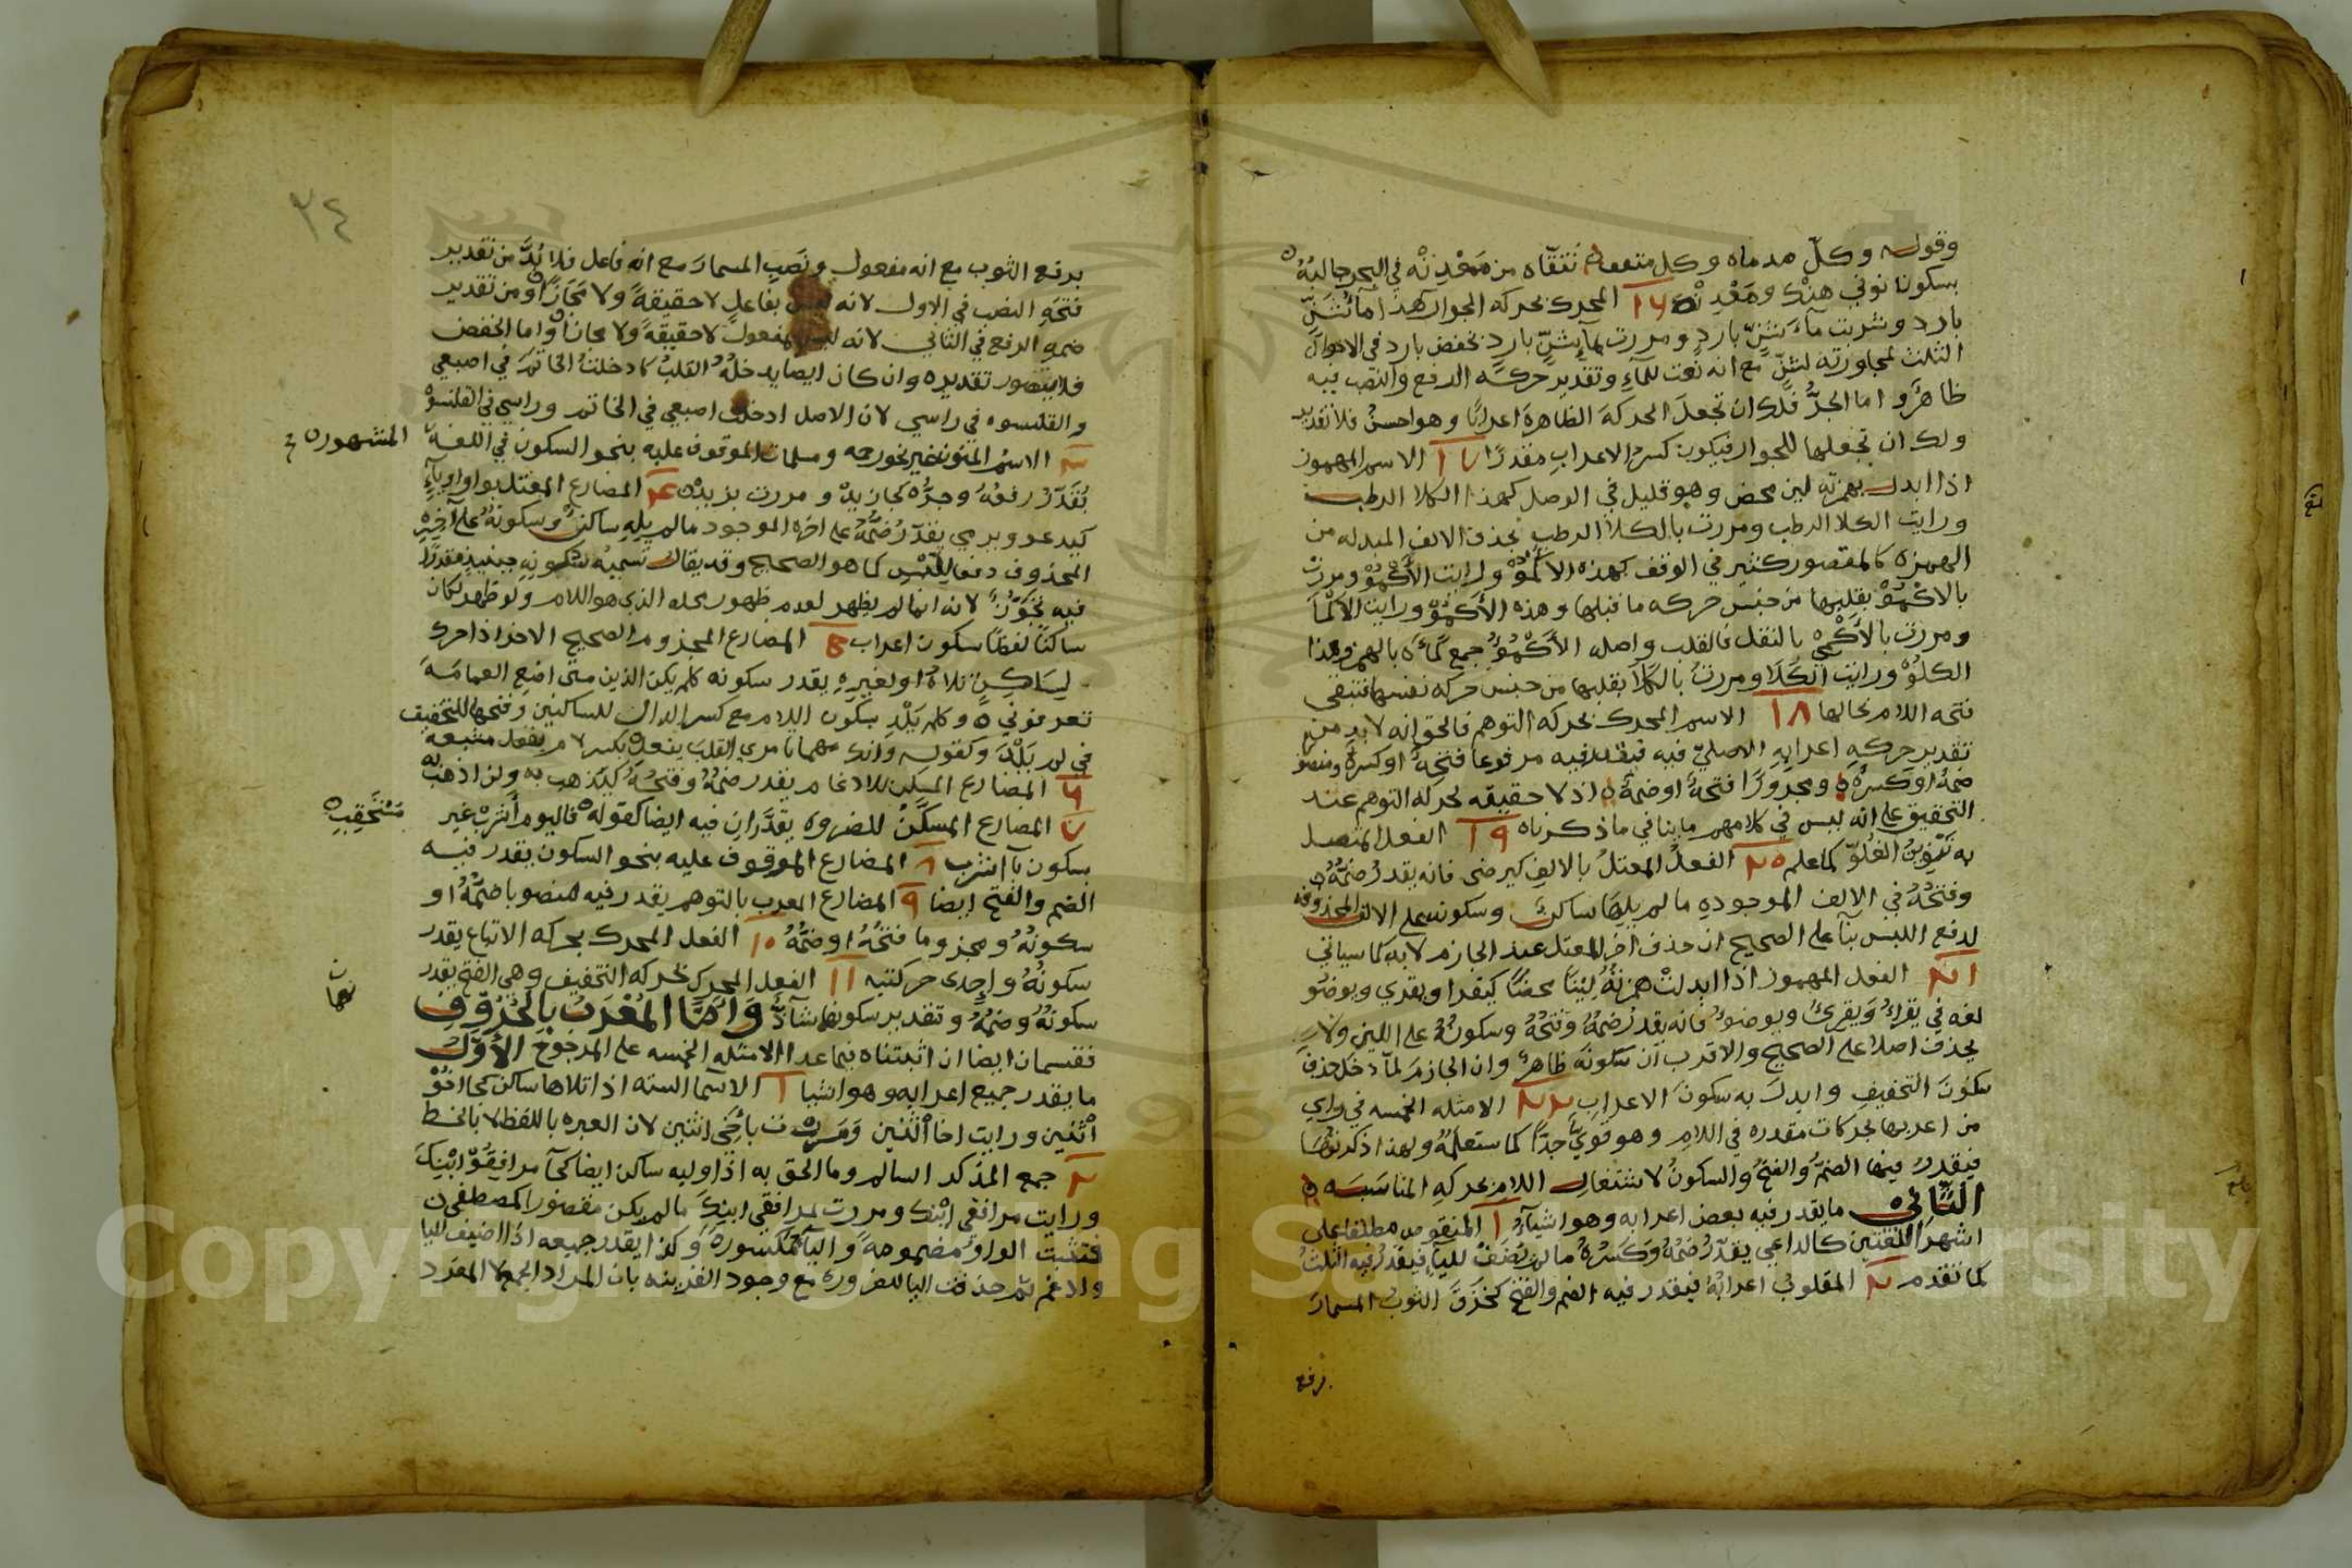 وقوله وكلّ مدماه وكل متقفه تنقّاه من مَعْدِنْه في البحر جالبُهْ
بسكون نوني هنْدَ ومَعْدِنْه ١٦ المحرك بحركه الجوار كهذا مآءُ شَنٍّ
باردٍ وشربت مآءَ شَنٍّ باردٍ ومررت بمآءِ شنٍّ باردٍ بخفض بارد في الاحوال
الثلث لمجاورته لشنٍّ مع انه نعت للمآءِ وتقدير حركه الرفع والنصب فيه
ظاهرٌ واما الجرُّ فلك ان تجعلَ الحركةَ الظاهرةَ اعرابًا وهو احسنُ فلا تقدير
ولك ان تجعلها للجوار فيكون كسرُ الاعرابِ مقدرًا ١٧ الاسم المهموز
اذا ابدل بهمزته لين محض وهو قليل في الوصل كهذا الكلا الرطب
ورايت الكلا الرطب ومررت بالكلا الرطب بحذف الالف المبدله من
الهمزه كالمقصور كثير في الوقف كهذه الاكْمُوْ ورايت الأَكْمُوْ ومررت
بالاكْمُوْ بقلبها من جنس حركه ما قبلها وهذه الأَكْمُوْ ورايت الاكْمَا
ومررت بالأَكْمِي بالنقل فالقلب واصل الأَكْمُؤُ جمع كَمْأَه بالهمز وهذا
الكلُوْ ورايت الكَلَا ومررت بالكلَا بقلبها من جنس حركه نفسها فتبقى
فتحه اللام بحالها ١٨ الاسم المحرك بحركه التوهم فالحق انه لا بد من
تقدير حركهِ اعرابِهِ الاصليّ فيه فيقدر فيه مرفوعا فتحهً او كسرهً ومنصوبا
ضمهً او كسرهً ومجرورًا فتحهً او ضمهً اذ لا حقيقه لحركه التوهم عند
التحقيق على انه ليس في كلامهم ما ينافي ما ذكرناه ١٩ الفعل المتصل
به تَنْوِينُ الغُلُوّ كما علم ٢٠ الفعلُ المعتلُ بالالفِ كيرضى فانه يقدرُ ضمُّهُ
وفتحُهُ في الالف الموجودهِ ما لم يلِهَا ساكنٌ وسكونه على الالف المحذوفه
لدفع اللبس بنآ على الصحيح ان حذف آخر المعتل عند الجازم لا به كما سياتي
٢١ الفعل المهموز اذا ابدلتْ همزتُهُ لِيْنًا محضًا كيقرا ويقري ويوضو
لغه في يقرأُ وَيقرئُ ويوضؤُ فانه يقدرُ ضمُّهُ وفتحُهُ وسكونُهُ على اللين ولا
يحذف اصلا على الصحيح والاقرب ان سكونَه ظاهرٌ وان الجازمَ لمّا دخل حذف
سكونَ التخفيفِ وابدلَ به سكونَ الاعرابِ ٢٢ الامثله الخمسه في راي
من اعربها بحركات مقدره في اللامِ وهو قويٌّ جدًّا كما ستعلمُهُ ولهذا ذكرتُهَا
فيقدرُ فيها الضمُّ والفتحُ والسكونُ لاشتغالِ اللامِ بحركهِ المناسَبَه
الثَّاني ما يقدر فيه بعض اعرابه وهو اشيآءُ ١ المنقوص مطلقا على
اشهر اللغتين كالداعي يقدّرُ ضمُّهُ وَكَسْرُهُ ما لم يُضَفْ لليآءِ فيقدرُ فيه الثلثُ
كما تقدم ٢ المقلوبُ اعرابُهُ فيقدر فيه الضم والفتح كخَرَقَ الثوبُ المسمارَ
برفع
٣٤
برفع الثوب مع انه مفعول ونَصبِ المسمارَ مع انه فاعل فلا بُدَّ من تقدير
فتحَهِ النصب في الاول لانه ليس بفاعلٍ لا حقيقةً ولا مَجَازًا ومن تقدير
ضمهِ الرفع في الثاني لانه ليس بمفعولٍ لا حقيقةً ولا مجازًا واما الخفض
فلا يتصور تقديره وان كان ايضا يدخلُهُ القلبُ كادخلتُ الخاتمَ في اصبعي
والقلنسوه في راسي لان الاصل ادخلت اصبعي في الخاتم وراسي في القلنسوه
٣ الاسمُ المنون غير نحو رحمه ومسلمات الموقوف عليه بنحو السكون في اللغه المشهوره
يُقَدَّرُ رفعُهُ وجرُّه كجا زيدْ ومررت بزيدْ ٤ المضارع المعتل بواو او يآءٍ
كيدعو ويرمي يقدّرُ ضمُّهُ على اخره الموجود ما لم يلِهِ ساكنٌ وسكونُهُ على آخرِهِ
المحذوف دفعا للبسِ كما هو الصحيح وقد يقال تسميةُ سكونِهِ حينيذٍ مقدرًا
فيه تجوّزٌ لانه انما لم يظهر لعدم ظهور محله الذي هو اللام ولو ظهر لكان
ساكنًا لفظًا سكون اعراب ٥ المضارع المجزوم الصحيح الاخر اذا حرك
لِسَاكِنٍ تلاهُ او لغيرِهِ يقدر سكونه كلم يكن الذين متى اضع العمامَهَ
تعرفوني وكلم يَلْدِ بسكون اللام مع كسر الدال للساكنين وفتحها للتخفيف
في لم يَلْدَ وكقوله وانك مهما تامري القلبَ يفعلِ بكسر لام يفعل متبعه
٦ المضارع المسكن للادغام يقدر ضمُّهُ وفتحُهُ كيذهب به ولن اذهب به
٧ المضارع المسكَّنُ للضروره يقدَّرانِ فيه ايضا كقوله فاليوم أشربْ غير مُسْتَحْقِبٍ
بسكون بآ اشرب ٨ المضارع الموقوف عليه بنحو السكون يقدر فيه
الضم والفتح ايضا ٩ المضارع المعرب بالتوهم يقدر فيه منصوبا ضمُّهُ او
سكونُهُ ومجزوما فتحُهُ او ضمُّهُ ١٠ الفعل المحرك بحركه الاتباع يقدر
سكونُهُ واحدى حركتيه ١١ الفعل المحرك بحركه التخفيف وهي الفتح يقدر
سكونُهُ وضمُّهُ وتقدير سكونها شآذٌّ وَامَّا المُعْرَبُ بِالحُرُوفِ
فقسمان ايضا ان اثبتناه فيما عدا الامثله الخمسه على المرجوح الأوَّلُ
ما يقدر جميع اعرابه وهو اشيا ١ الاسما السته اذا تلاها ساكن كجا اخُوْ
اثْنين ورايت اخا اثْنين وَمَررت بأخي اثنين لان العبره باللفظ لا بالخط
٢ جمع المذكر السالم وما الحق به اذا وليه ساكن ايضا كجآ مرافِقُوْ ابْنِكَ
ورايت مرافقي ابْنك ومررت بمرافقي ابنِكَ ما لم يكن مقصورا كمصطفى
فتثبت الواوُ مضمومهً واليآ مكسورهً وكذا يقدر جميعه اذا اضيف لليا
وادغم ثم حذفت اليا للضروره مع وجود القرينه بان المراد الجمع لا المفرد